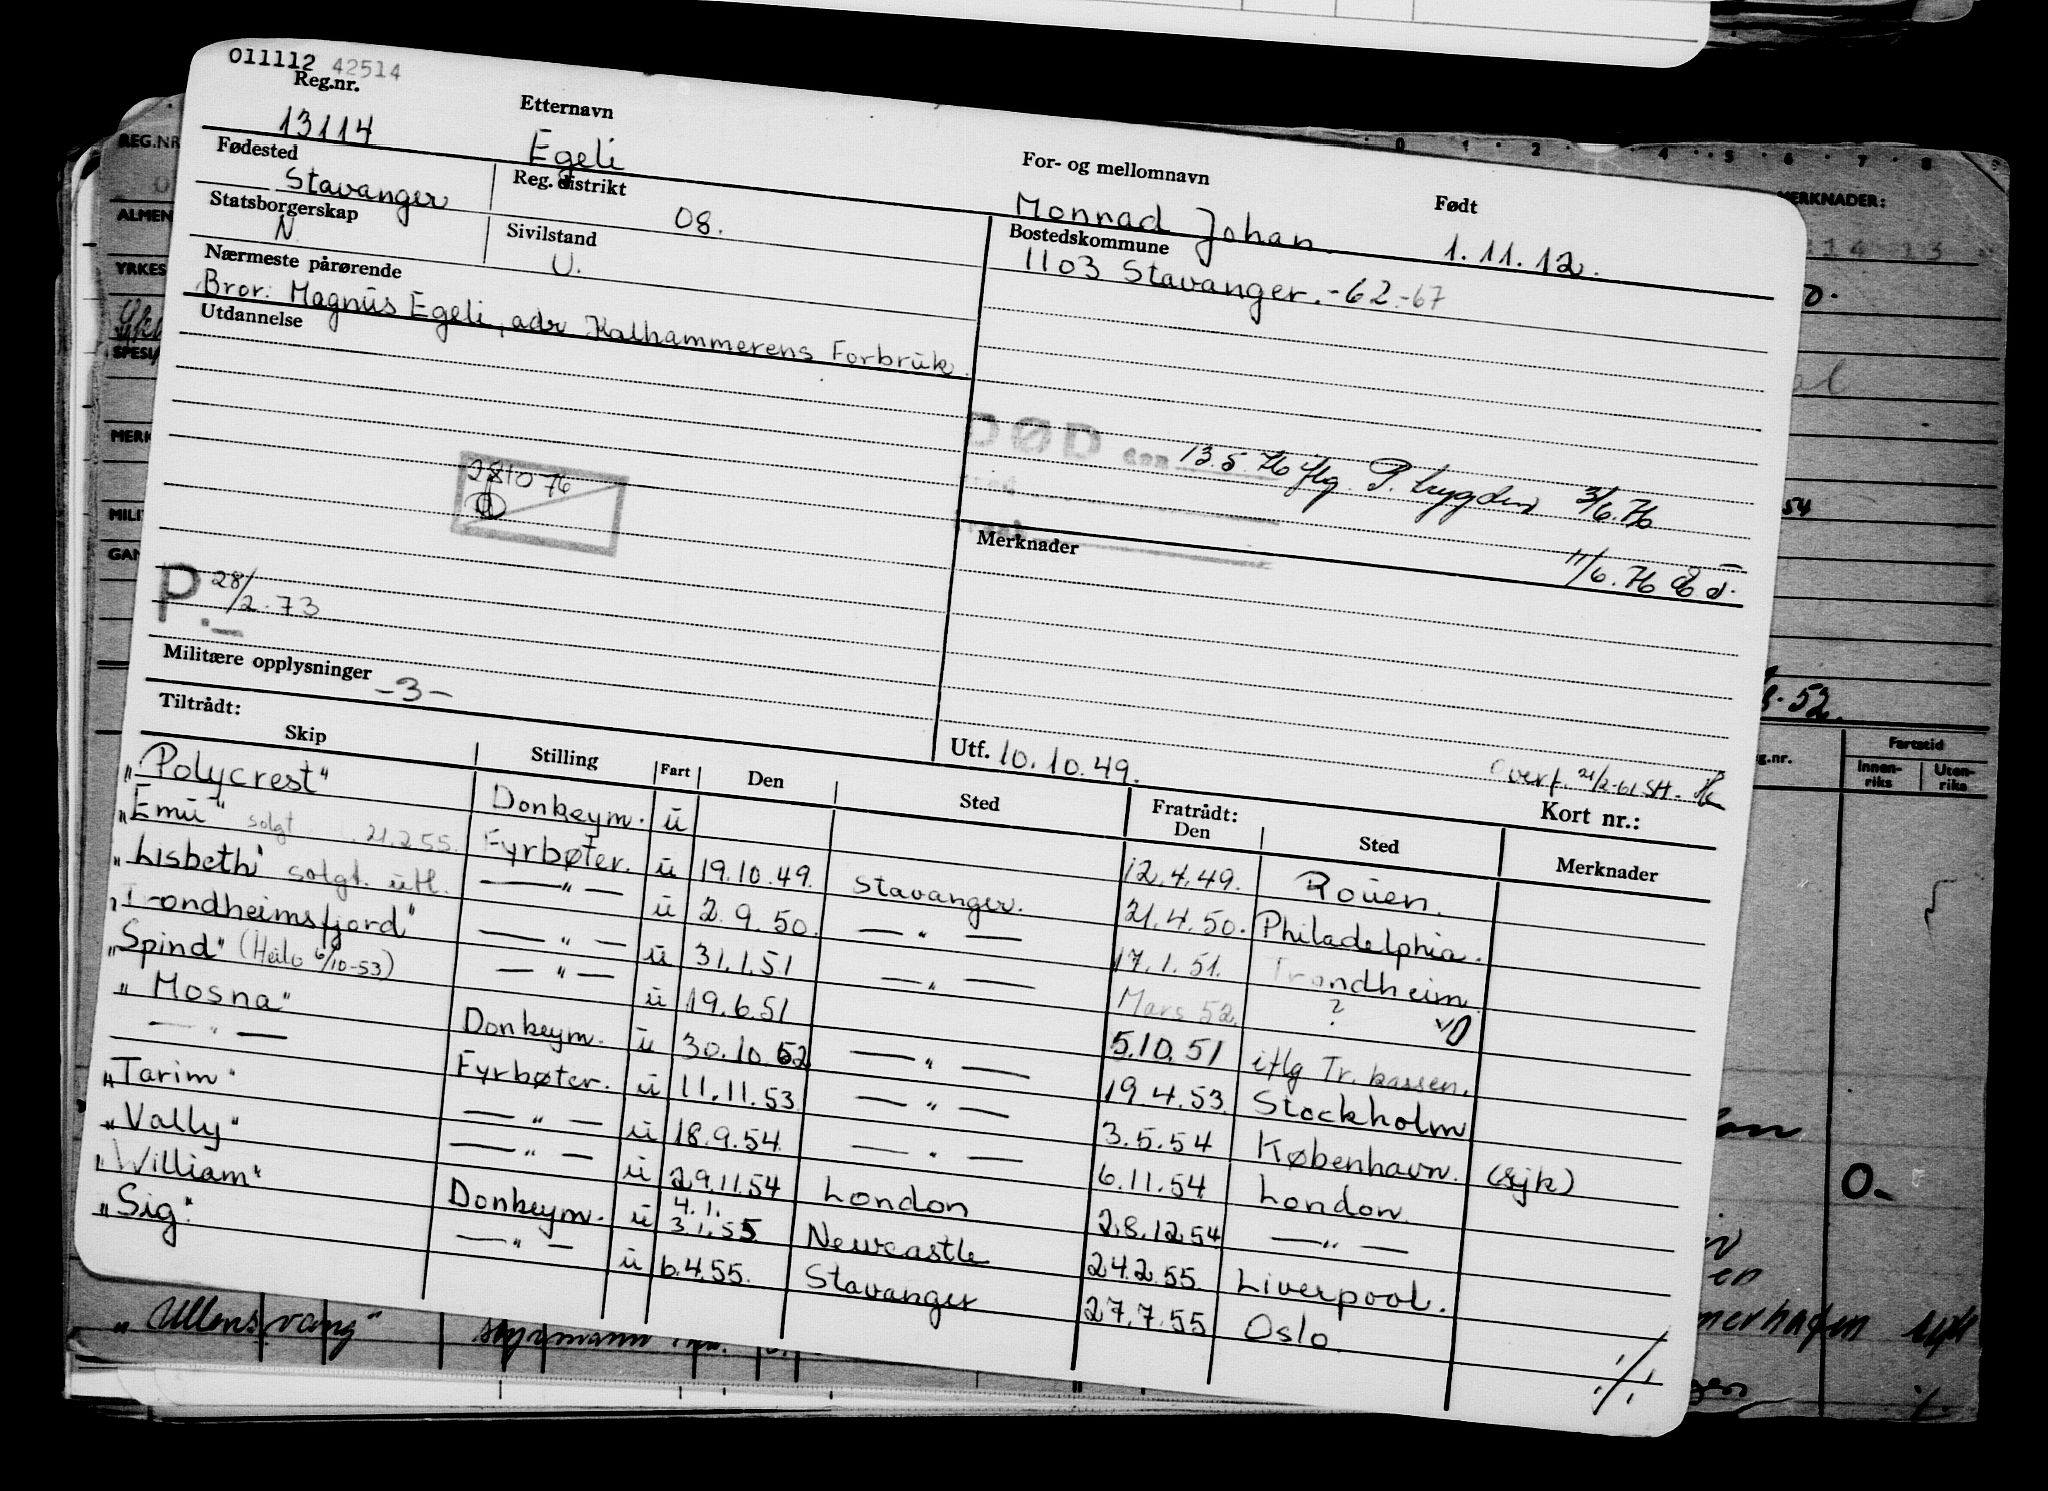 011112 42514
Reg.nr. Etternavn For- og mellomnavn Født
13114 Egeli Monrad Johan. 1.11.12.
Fødested Reg. distrikt Bostedskommune
Stavanger 08. 1103 Stavanger. -62-67
Statsborgerskap Sivilstand
N. U.
Nærmeste pårørende
Bror: Magnus Egeli, adr Kalhammerens Forbruk.
Utdannelse
DØD den 13.5.76 iflg. P. 3/6.76
28 10 76
Merknader
11/6.76
P. 28/2.73
Militære opplysninger -3-
Utf. 10.10.49. Overf. 21/2-61 SH.
Tiltrådt: Fratrådt: Kort nr.:
Skip Stilling Fart Den Sted Den Sted Merknader
"Polycrest" Donkeym. u 12.4.49. Rouen.
"Emu" solgt 21.2.55. Fyrbøter. u 19.10.49. Stavanger. 21.4.50. Philadelphia.
"Lisbeth" solgt. utl. —"— u 2.9.50. —"— 17.1.51. Trondheim
"Trondheimsfjord" —"— u 31.1.51 —"— Mars 52. ?
"Spind" (Heilo 6/10-53) —"— u 19.6.51 5.10.51 iflg Tr. kassen.
"Mosna" Donkeym. u 30.10.52 —"— 19.4.53. Stockholm
—"— Fyrbøter. u 11.11.53 —"— 3.5.54 København. (syk)
"Tarim" —"— u 18.9.54. —"— 6.11.54. London.
"Vally" —"— u 29.11.54 London 28.12.54 —"—
"William" Donkeym. u 4.1. 3.1.55 Newcastle 24.2.55. Liverpool.
"Sig" —"— u 6.4.55. Stavanger 27.7.55 Oslo.
REG.NR
ALMEN
YRKES
SPESI
MERK
MILIT
GAN
MERKNADER:
54
52.
Fartstid
Innenriks Utenriks
0.
"Ullensvang" styrmann